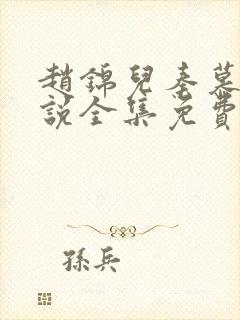 趙錦兒秦慕
說全集免費
孫兵